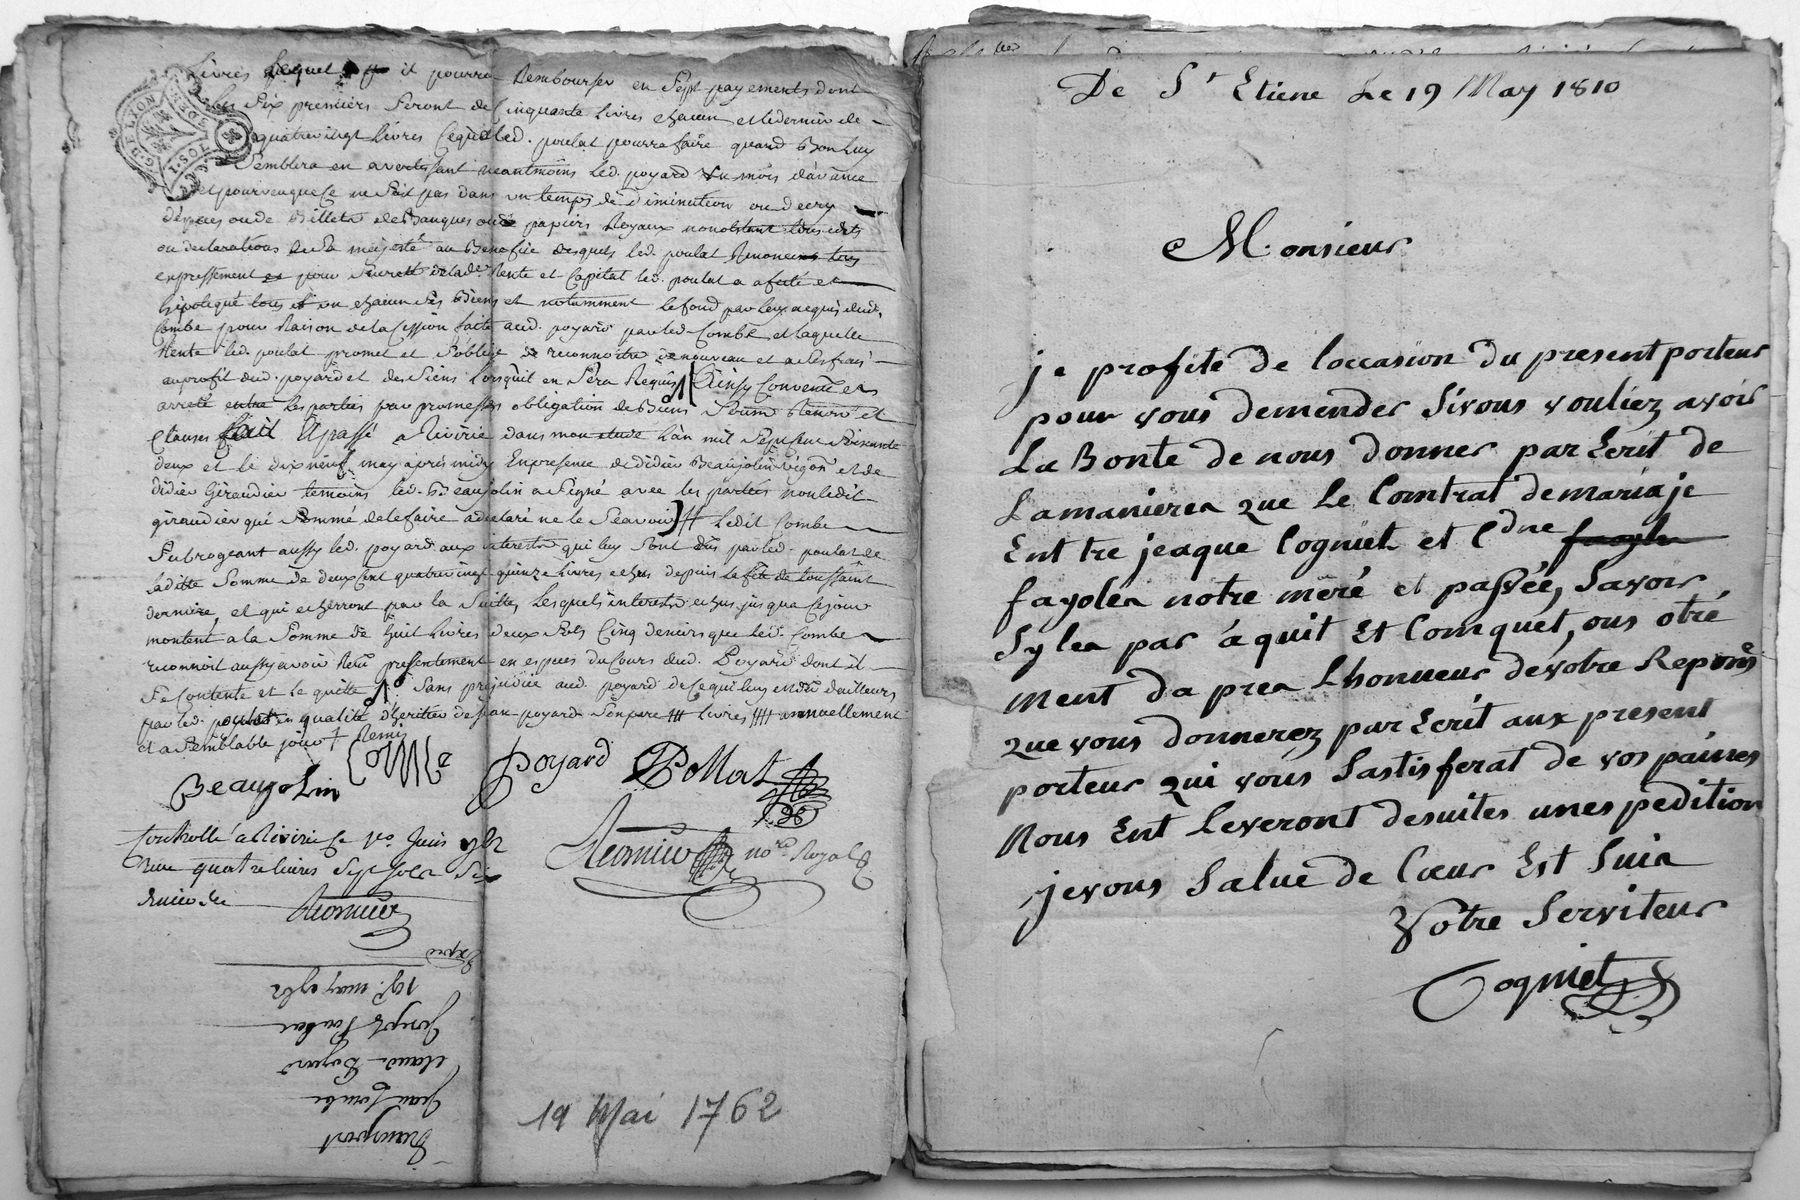 Livres Lequel il pourra Rembourser en Sept payements dont
Les Six premiers Seront de Cinquante Livres chacun et le dernier de
quatrevingt Livres Ceque led. poulat pourra faire quand Bon Luy
Semblera en avertissant neantmoins led. poyard un mois d'avance
et pourveuque Ce ne Soit pas dans un temps de diminution ou decry
d'Especes ou de Billets de Banques ou de papiers Royaux nonobstant tous edits
ou declarations de Sa majesté au Benefice desquels led. poulat Renonce
expressement et pour Seureté de lad. Rente et Capital led. poulat a afecté et
hipotequé tous et un chacun Ses Biens et notamment le fond par luy acquis dud.
Combe pour Raison de la Cession faite aud. poyard par led. Combe et laquelle
Rente led. poulat promet et S'oblige de reconnoitre de nouveau et a Ses frais
au profit dud. poyard et des Siens Lorsqu'il en Sera Requis Ainsy Convenu et
arreté entre Les parties par promesses obligation de Biens et
Clauses fait & passé a Riverie dans mon etude L'an mil Sept Cent Soixante
deux et le dix neuf may après midy En presence de didier Beaujolin et de
didier Giraudier temoins led. Beaujolin a Signé avec les parties non ledit
giraudier qui Sommé de le faire a declaré ne le Scavoir ledit Combe
Subrogeant aussy led. poyard aux interests qui luy Sont dûs par led. poulat de
laditte Somme de deux Cent quatrevingt quinze Livres echus depuis la fête de toussaint
derniere, et qui echerront par la Suitte, Lesquels interests echus jusqua Ce jour
montent a la Somme de huit Livres deux Sols Cinq deniers que led. Combe
reconnoit aussy avoir Reçu presentement en especes du Cours dud. Poyard dont il
Se Contente et le quitte Sans prejudice aud. poyard de Ce qui luy est dû d'ailleurs
par led. poulat en qualité d'heritier de jean poyard Son pere livres annuellement
et a Semblable jour
Beaujolin Combe Poyard Pollat
Controllé a Riverie Ce 1er. Juin 1762
Reçu quatre livres Sept Sols Six
deniers
nore. Royal
19e. may 1762
Claud Poyard
Jean Combe
19 Mai 1762
De St Etiene Le 19 May 1810
Monsieur
je profite de loccasion du present porteur
pour vous demender Sivous vouliez avoir
La Bonte de nous donner par Ecrit de
Lamanierea que Le Comtrat demariaje
Enttre jeaque Cogniet et Cdne
fayolea notre meré et passée, Savoir
Sylea par áquit Et Comquet, ous otré
Ment da prea Lhonneur devotre Repons
que vous donnerez par Ecrit aux present
porteur qui vous Sastisferat de vos paines
Nous Ent Leveront desuites unes pedition
jevous Salue de Cœur Est Suia
Votre Serviteur
Cogniet